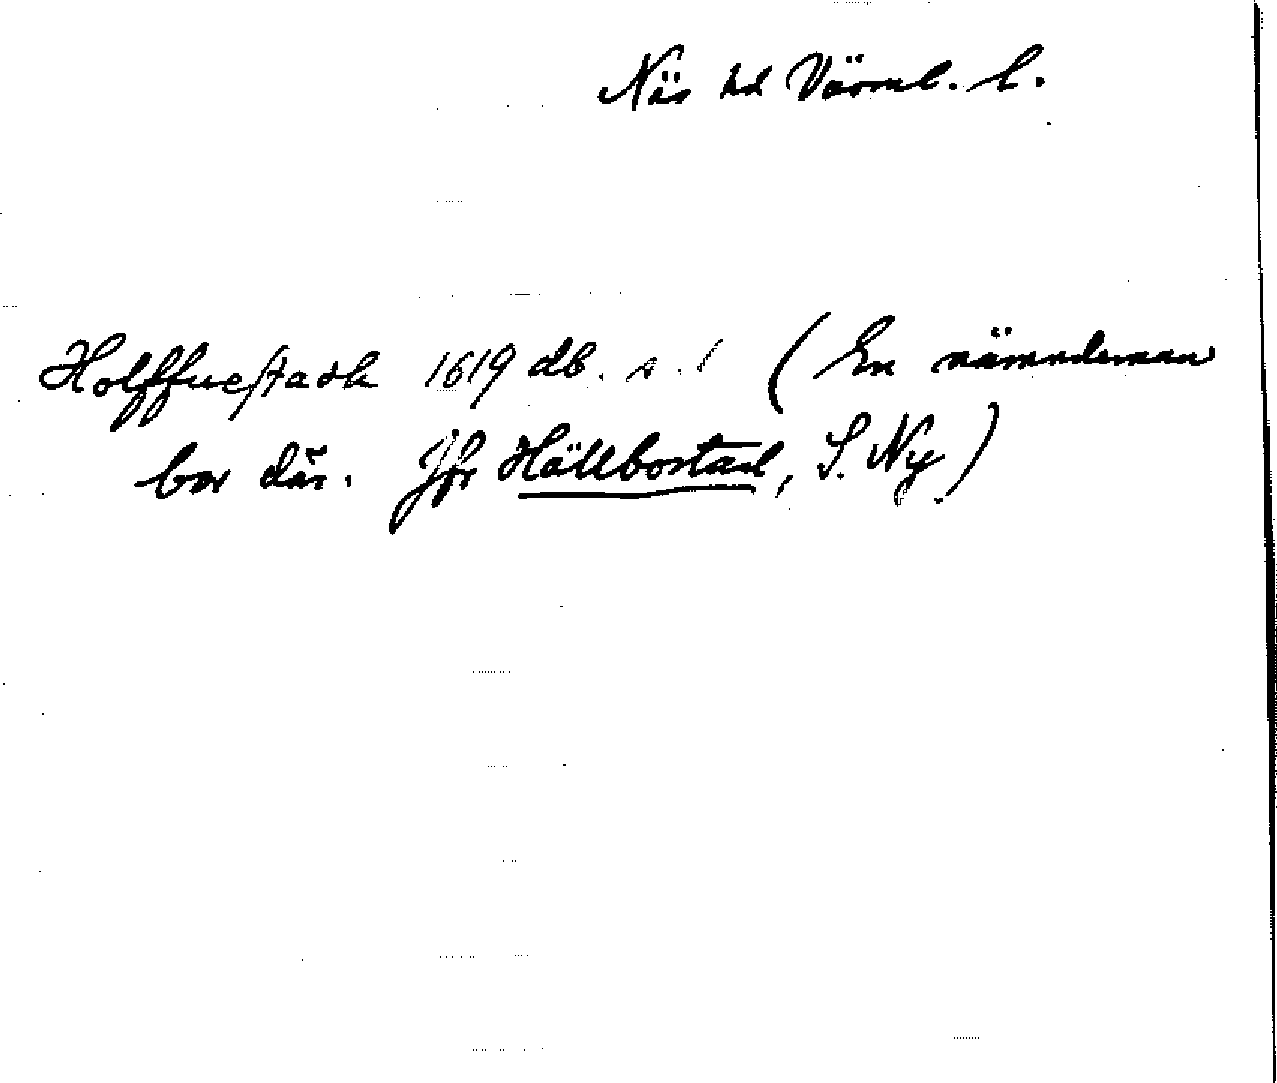 Näs hd Värml. l.
Holffuestadh 1619 db. s. 1 (En nämndeman
bor där. Jfr Hällbostad, S. Ny.)